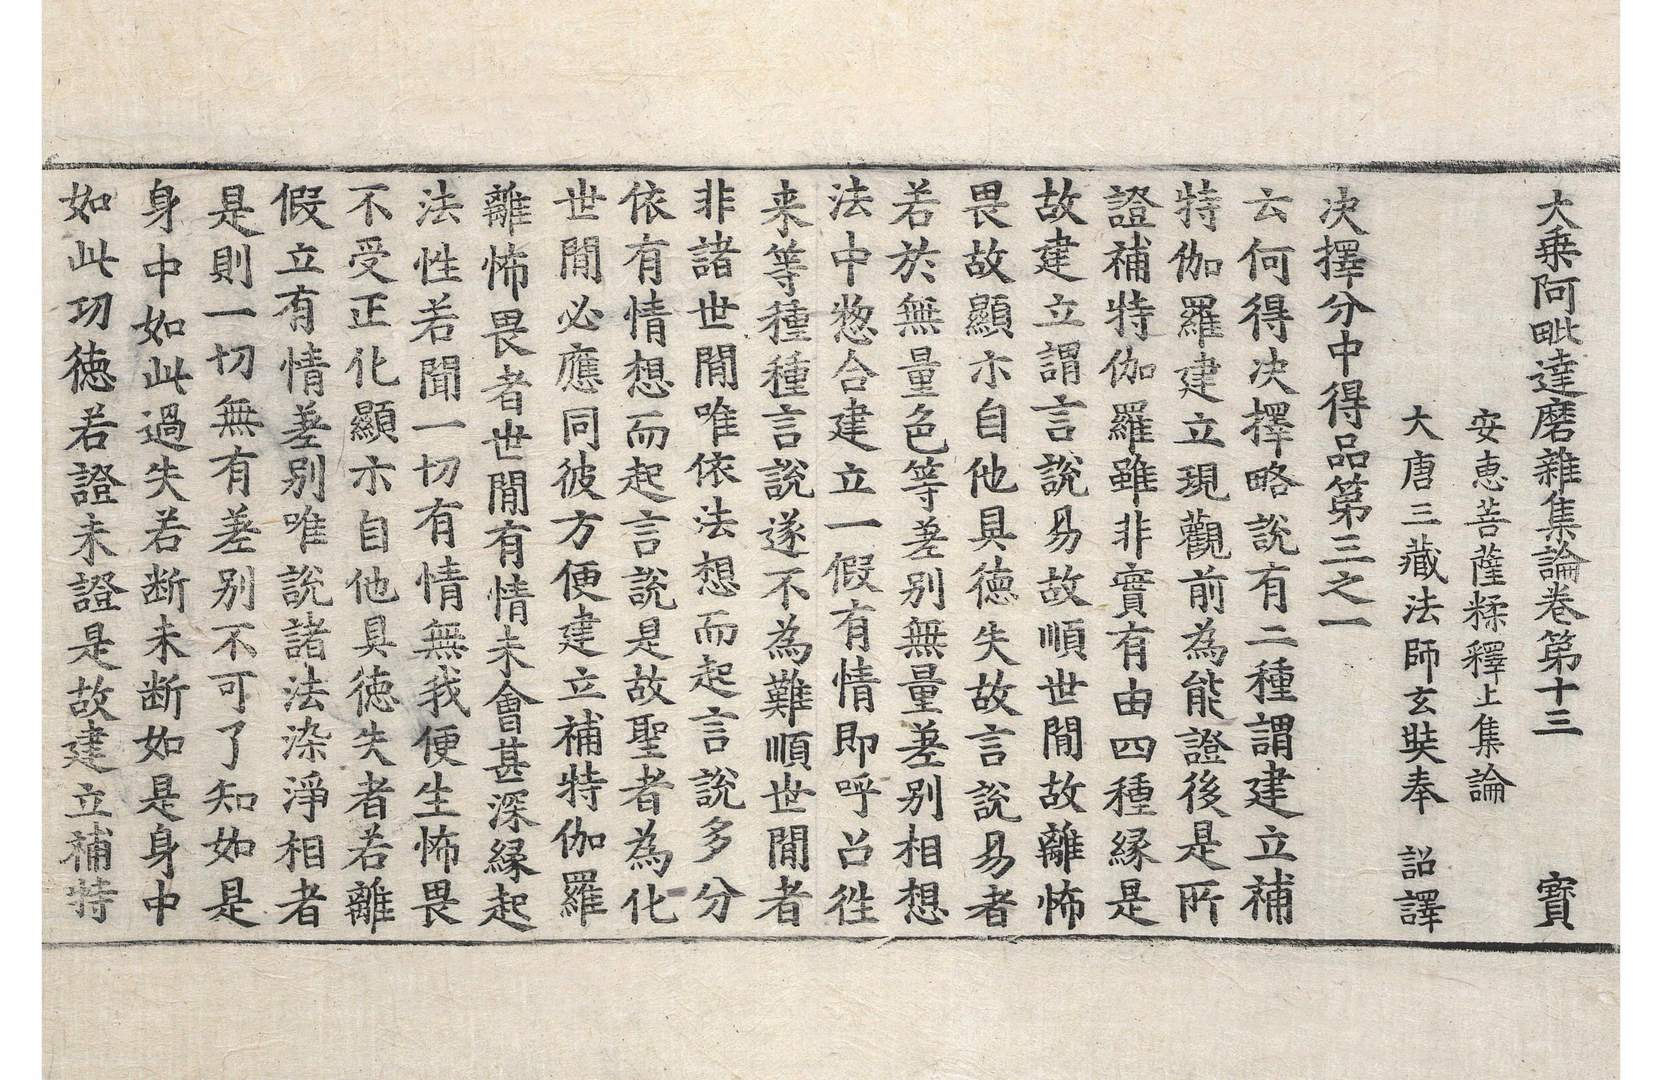 大乗阿毗達磨雜集論卷第十三 寳
安恵菩薩糅釋上集論
大唐三藏法師玄奘奉 詔譯
决擇分中得品第三之一
云何得决擇略說有二種謂建立補
特伽羅建立現觀前為能證後是所
證補特伽羅雖非實有由四種縁是
故建立謂言說易故順世閒故離怖
畏故顯示自他具德失故言說易者
若於無量色等差別無量差別相想
法中惣合建立一假有情即呼召徃
来等種種言說遂不為難順世閒者
非諸世閒唯依法想而起言說多分
依有情想而起言說是故聖者為化
世閒必應同彼方便建立補特伽羅
離怖畏者世閒有情未會甚深縁起
法性若聞一切有情無我便生怖畏
不受正化顯示自他具德失者若離
假立有情差別唯說諸法染淨相者
是則一切無有差別不可了知如是
身中如此過失若断未断如是身中
如此功德若證未證是故建立補特